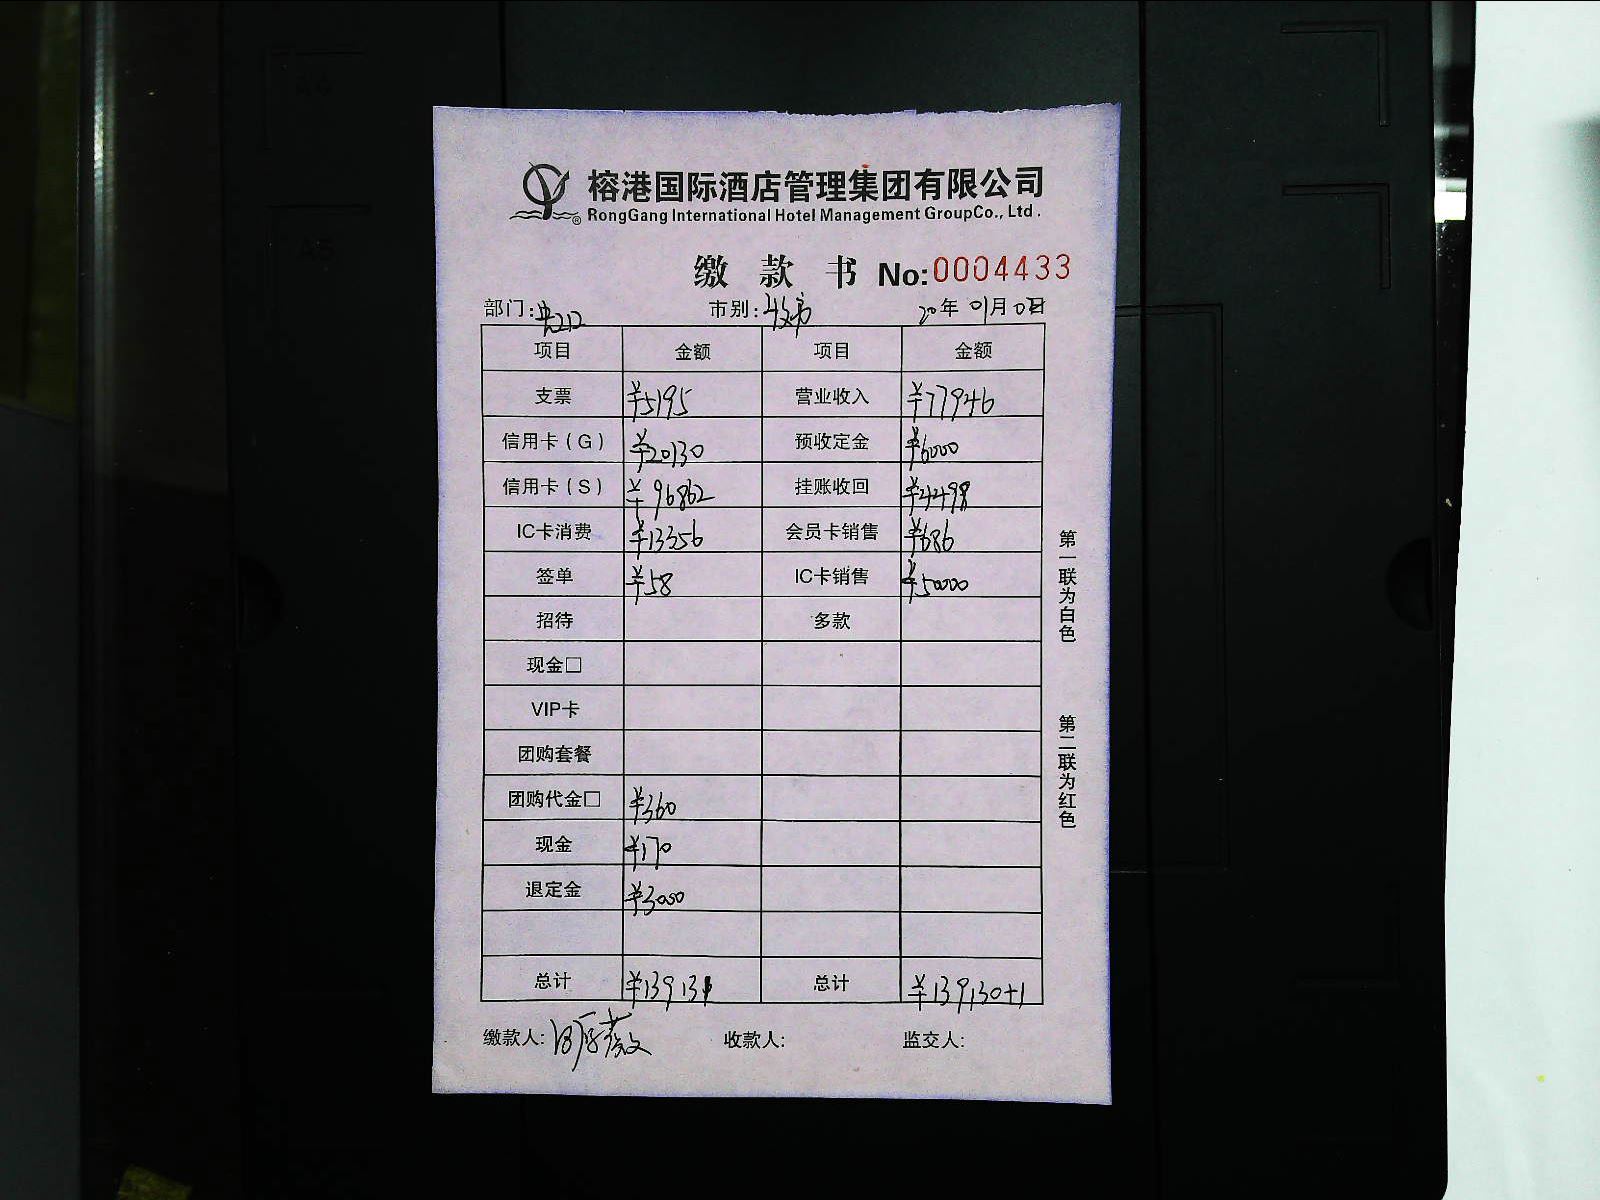 榕港国际酒店管理集团有限公司
RongGang International Hotel Management GroupCo., Ltd.
缴款书 No:0004433
部门: 市别: 收市 20年 01月 02日
项目 金额 项目 金额
支票 ¥5195 营业收入 ¥77946
信用卡(G) ¥20130 预收定金 ¥6000
信用卡(S) ¥96862 挂账收回 ¥4498
IC卡消费 ¥13356 会员卡销售 ¥686
签单 ¥58 IC卡销售 ¥50000
招待 多款
现金□
VIP卡
团购套餐
团购代金□ ¥360
现金 ¥170
退定金 ¥3000
总计 ¥139131 总计 ¥139130+1
缴款人: 收款人: 监交人:
第一联为白色
第二联为红色
A5